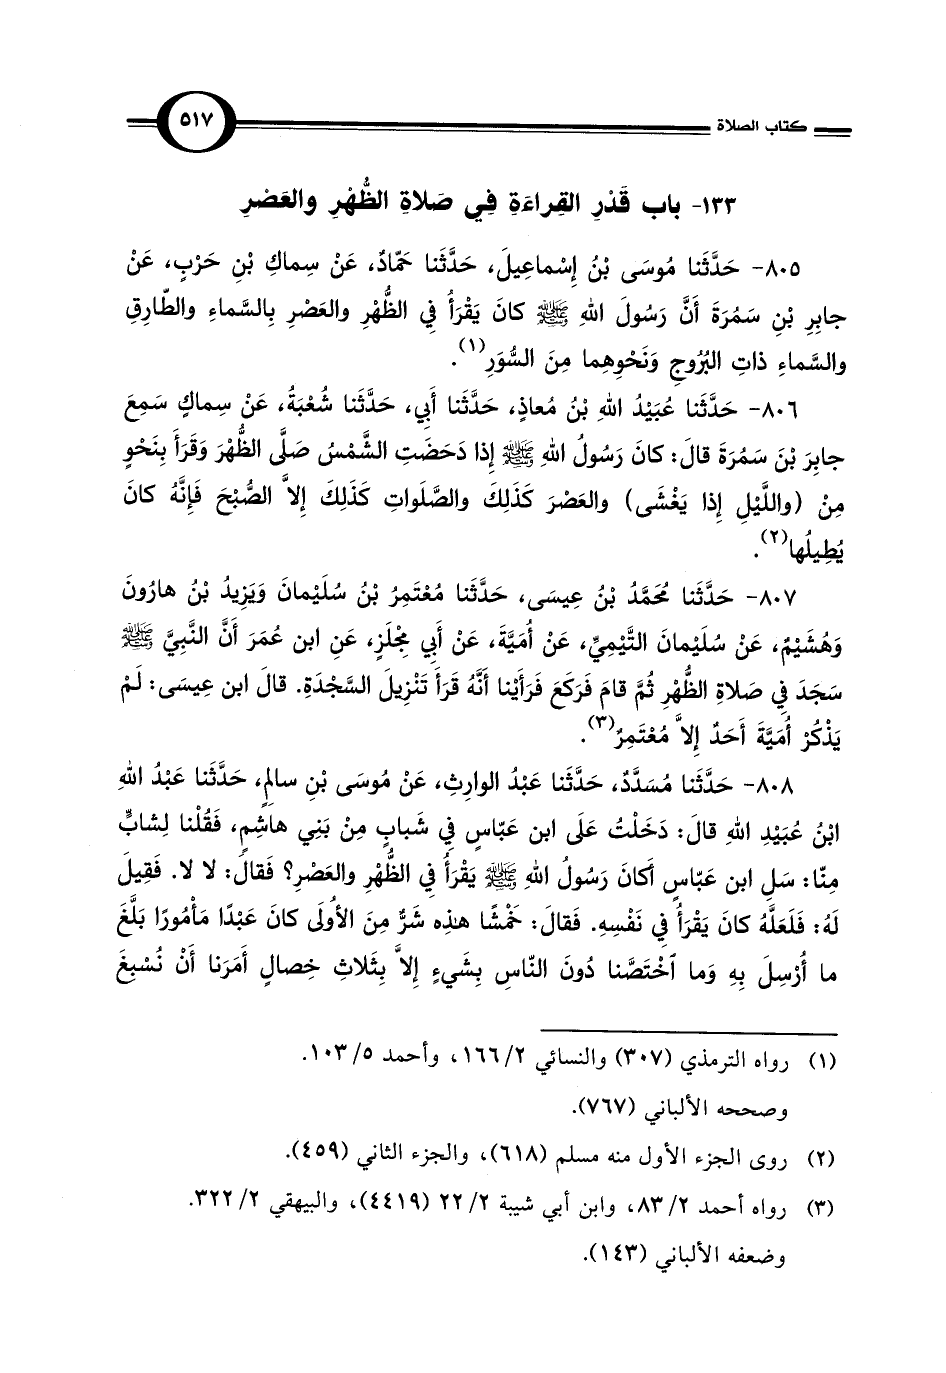 كتاب الصلاة ٥١٧
١٣٣- باب قَدْرِ القِراءَةِ فِي صَلاةِ الظُّهْرِ والعَصْرِ
٨٠٥- حَدَّثَنا مُوسَى بْنُ إِسْماعِيلَ، حَدَّثَنا حَمّادٌ، عَنْ سِماكِ بْنِ حَرْبٍ، عَنْ
جابِرِ بْنِ سَمُرَةَ أَنَّ رَسُولَ اللهِ ﷺ كانَ يَقْرَأُ فِي الظُّهْرِ والعَصْرِ بِالسَّماءِ والطّارِقِ
والسَّماءِ ذاتِ البُرُوجِ وَنَحْوِهِما مِنَ السُّوَرِ(١).
٨٠٦- حَدَّثَنا عُبَيْدُ اللهِ بْنُ مُعاذٍ، حَدَّثَنا أَبِي، حَدَّثَنا شُعْبَةُ، عَنْ سِماكٍ سَمِعَ
جابِرَ بْنَ سَمُرَةَ قالَ: كانَ رَسُولُ اللهِ ﷺ إِذا دَحَضَتِ الشَّمْسُ صَلَّى الظُّهْرَ وَقَرَأَ بِنَحْوٍ
مِنْ (واللَّيْلِ إِذا يَغْشَى) والعَصْرَ كَذَلِكَ والصَّلَواتِ كَذَلِكَ إِلاَّ الصُّبْحَ فَإِنَّهُ كانَ
يُطِيلُها(٢).
٨٠٧- حَدَّثَنا مُحَمَّدُ بْنُ عِيسَى، حَدَّثَنا مُعْتَمِرُ بْنُ سُلَيْمانَ وَيَزِيدُ بْنُ هارُونَ
وَهُشَيْمٌ، عَنْ سُلَيْمانَ التَّيْمِيِّ، عَنْ أُمَيَّةَ، عَنْ أَبِي مِجْلَزٍ، عَنِ ابن عُمَرَ أَنَّ النَّبِيَّ ﷺ
سَجَدَ فِي صَلاةِ الظُّهْرِ ثُمَّ قامَ فَرَكَعَ فَرَأَيْنا أَنَّهُ قَرَأَ تَنْزِيلَ السَّجْدَةِ. قالَ ابن عِيسَى: لَمْ
يَذْكُرْ أُمَيَّةَ أَحَدٌ إِلاَّ مُعْتَمِرٌ(٣).
٨٠٨- حَدَّثَنا مُسَدَّدٌ، حَدَّثَنا عَبْدُ الوارِثِ، عَنْ مُوسَى بْنِ سالِمٍ، حَدَّثَنا عَبْدُ اللهِ
ابْنُ عُبَيْدِ اللهِ قالَ: دَخَلْتُ عَلَى ابن عَبّاسٍ فِي شَبابٍ مِنْ بَنِي هاشِمٍ، فَقُلْنا لِشابٍّ
مِنّا: سَلِ ابن عَبّاسٍ أَكانَ رَسُولُ اللهِ ﷺ يَقْرَأُ فِي الظُّهْرِ والعَصْرِ؟ فَقالَ: لا لا. فَقِيلَ
لَهُ: فَلَعَلَّهُ كانَ يَقْرَأُ فِي نَفْسِهِ. فَقالَ: خَمْشًا هذِه شَرٌّ مِنَ الأُولَى كانَ عَبْدًا مَأْمُورًا بَلَّغَ
ما أُرْسِلَ بِهِ وَما ٱخْتَصَّنا دُونَ النّاسِ بِشَيْءٍ إِلاَّ بِثَلاثِ خِصالٍ أَمَرَنا أَنْ نُسْبِغَ
(١) رواه الترمذي (٣٠٧) والنسائي ٢/ ١٦٦، وأحمد ٥/ ١٠٣.
وصححه الألباني (٧٦٧).
(٢) روى الجزء الأول منه مسلم (٦١٨)، والجزء الثاني (٤٥٩).
(٣) رواه أحمد ٢/ ٨٣، وابن أبي شيبة ٢/ ٢٢ (٤٤١٩)، والبيهقي ٢/ ٣٢٢.
وضعفه الألباني (١٤٣).